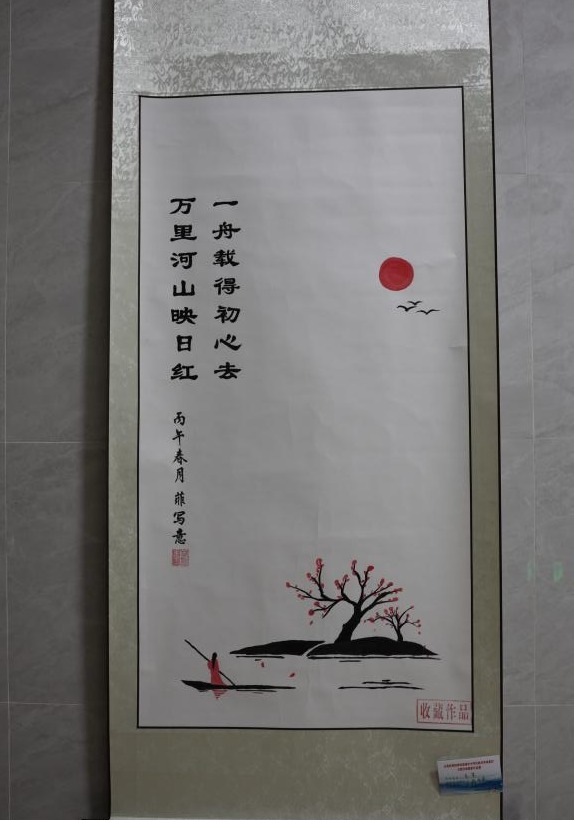 一舟载得初心去
万里河山映日红
丙午春月菲写意
收藏作品